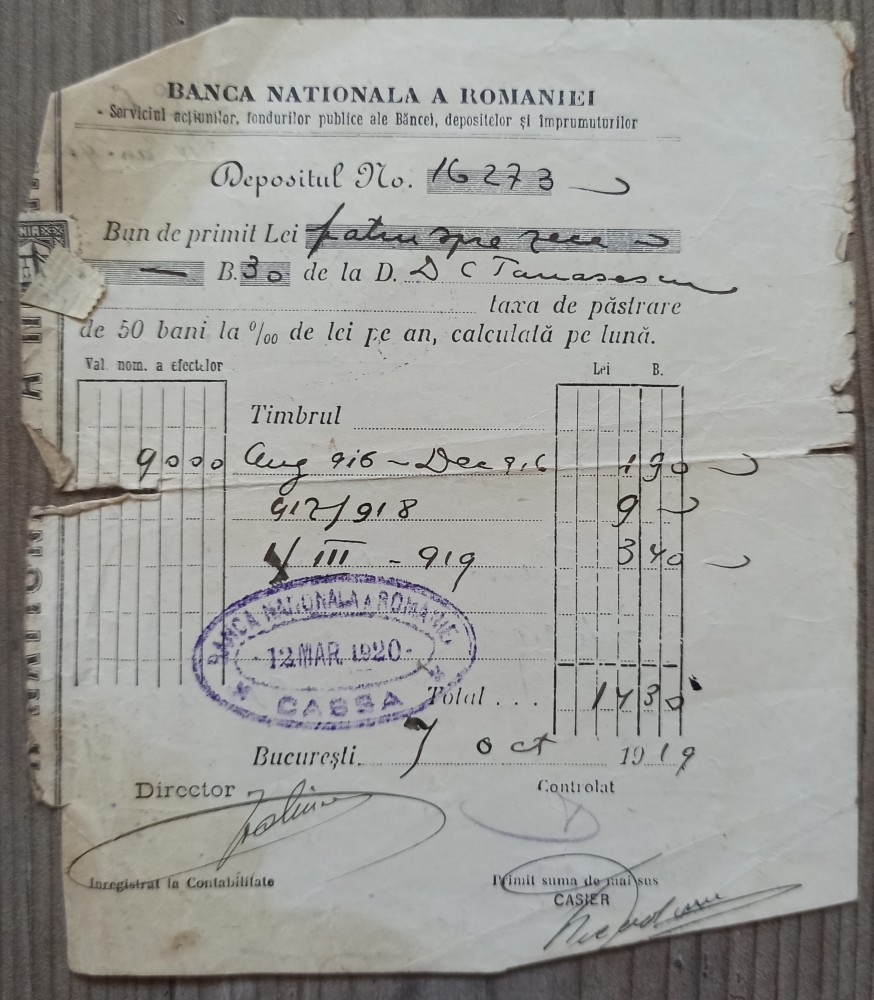 BANCA NATIONALA A ROMANIEI
Serviciul acțiunilor, fondurilor publice ale Băncei, depositelor și împrumuturilor
Depositul No. 16273
Bun de primit Lei patru spre zece
— B. 30 de la D. D C Tanasescu
taxa de păstrare
de 50 bani la ⁰/₀₀ de lei pe an, calculată pe lună.
Val. nom. a efectelor Lei B.
Timbrul
9000 Aug 916 - Dec 916 1 90
917/918 9
III - 919 3 40
BANCA NAȚIONALA A ROMANIEI
12 MAR. 1920
CASSA
Total . . . 14 30
București. 7 oct 1919
Director Controlat
Inregistrat la Contabilitate Primit suma de mai sus
CASIER